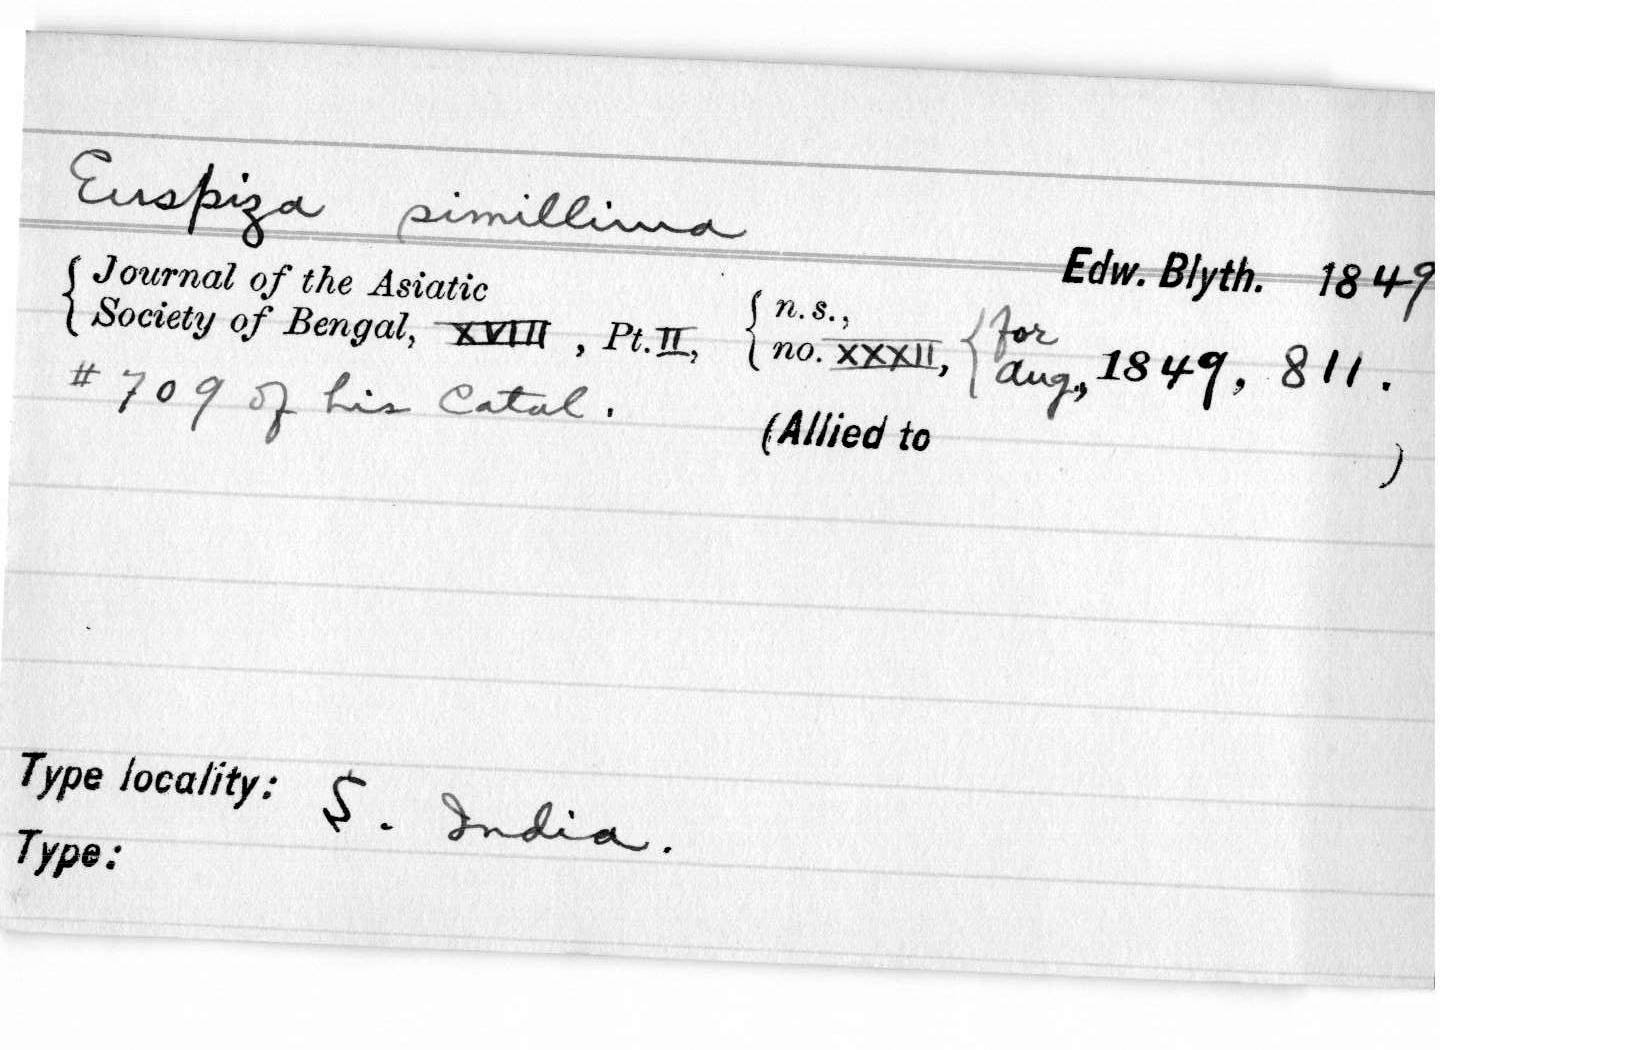 Euspiza simillima
Edw. Blyth. 1849
Journal of the Asiatic
Society of Bengal, XVIII, Pt. II, { n.s., no. XXXII, { for Aug., 1849, 811.
# 709 of his Catal.
(Allied to )
Type locality: S. India.
Type: